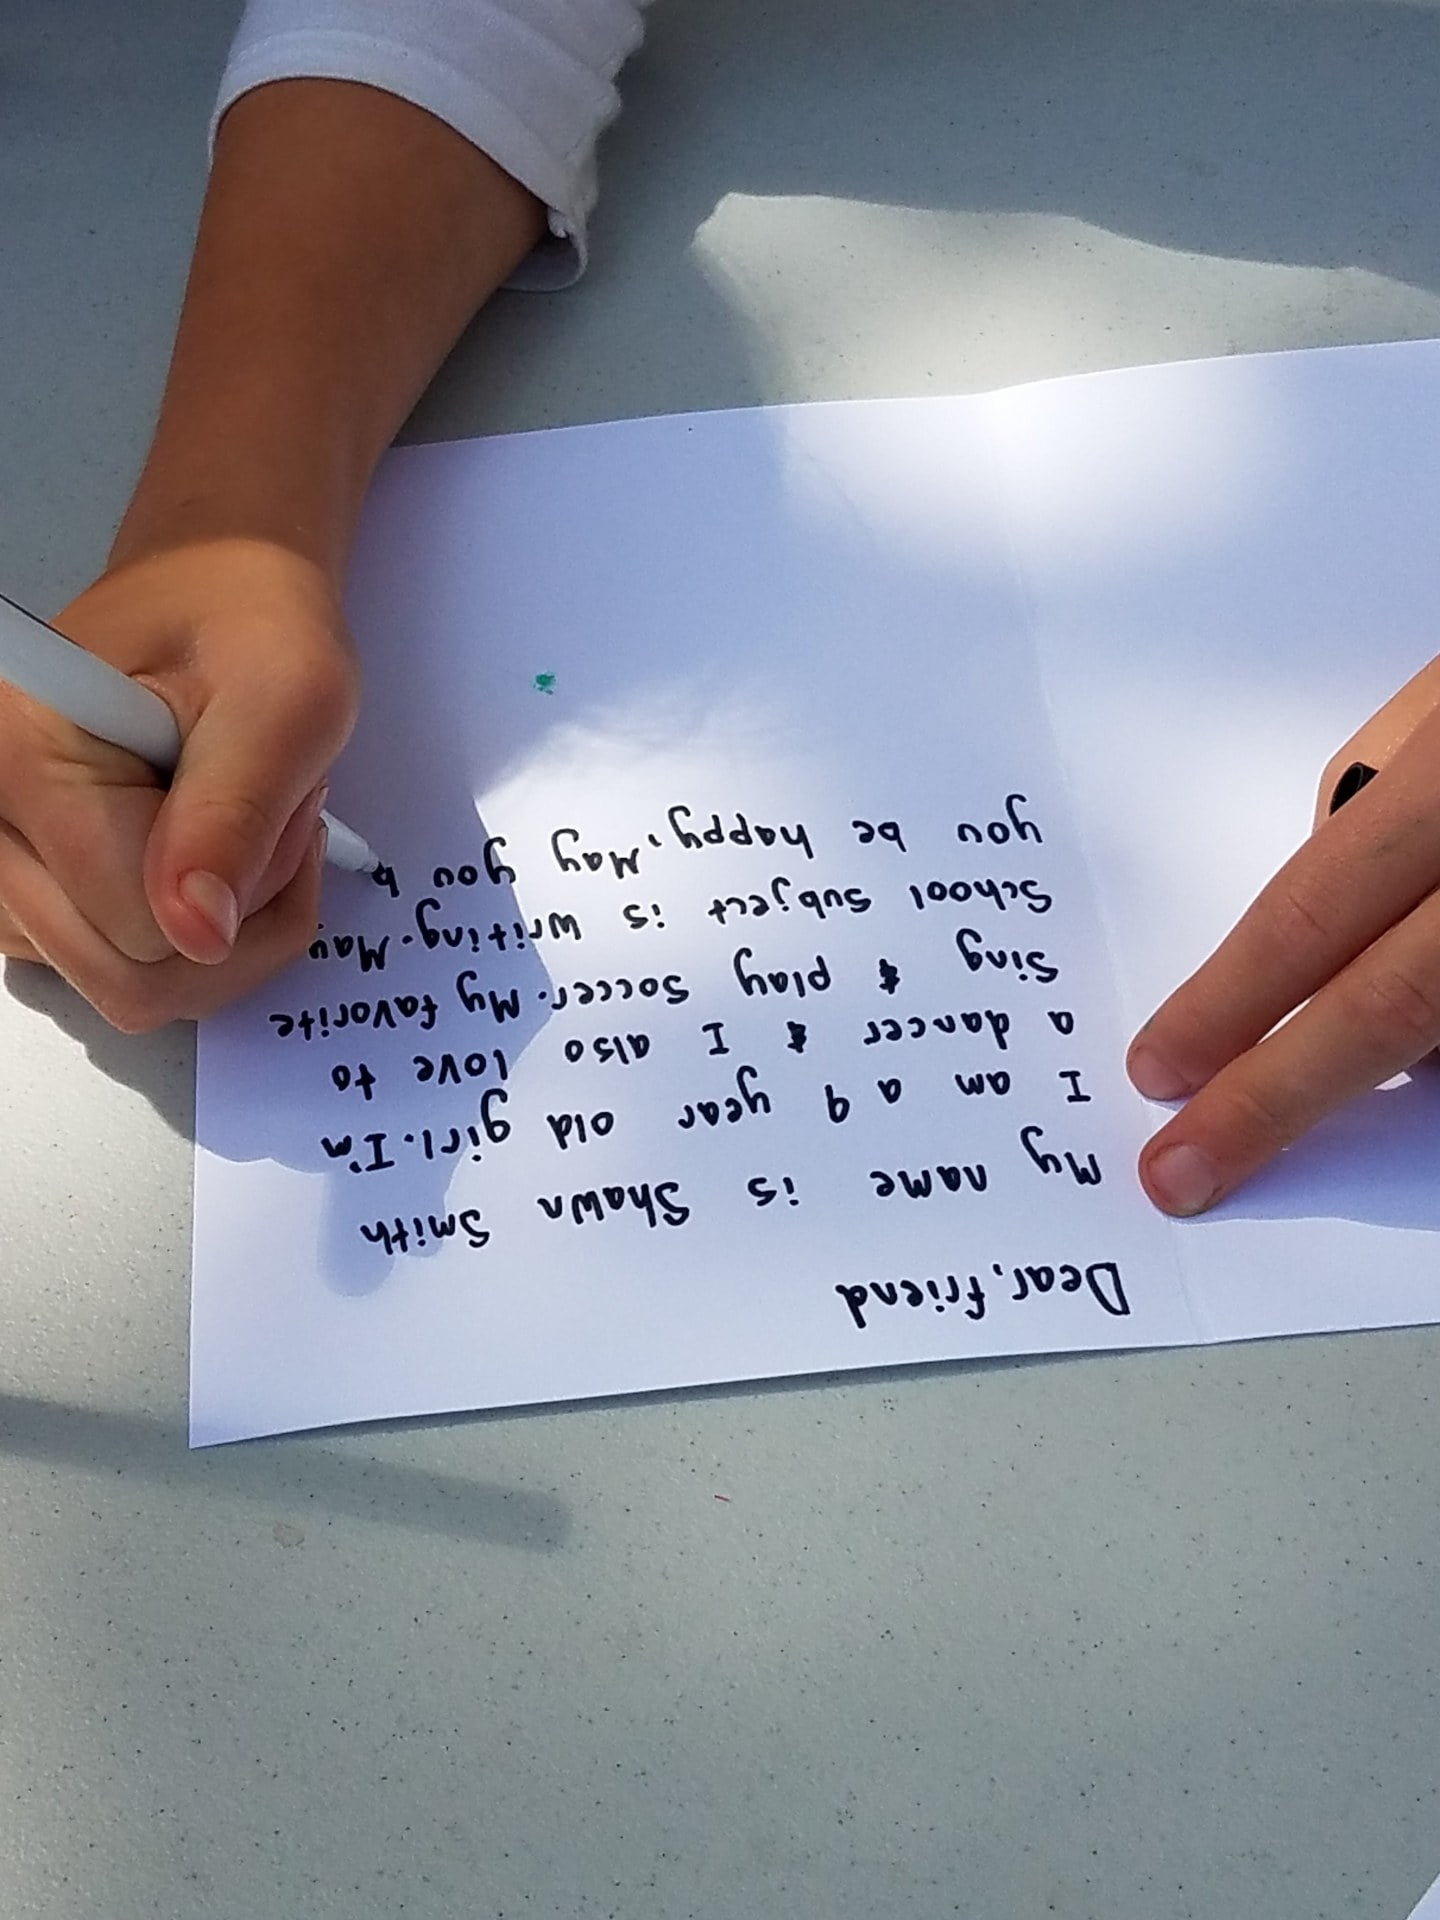 Dear, friend
My name is Shawn Smith
I am a 9 year old girl. I'm
a dancer & I also love to
Sing & play Soccer. My favorite
School Subject is writing. May
you be happy, May you b